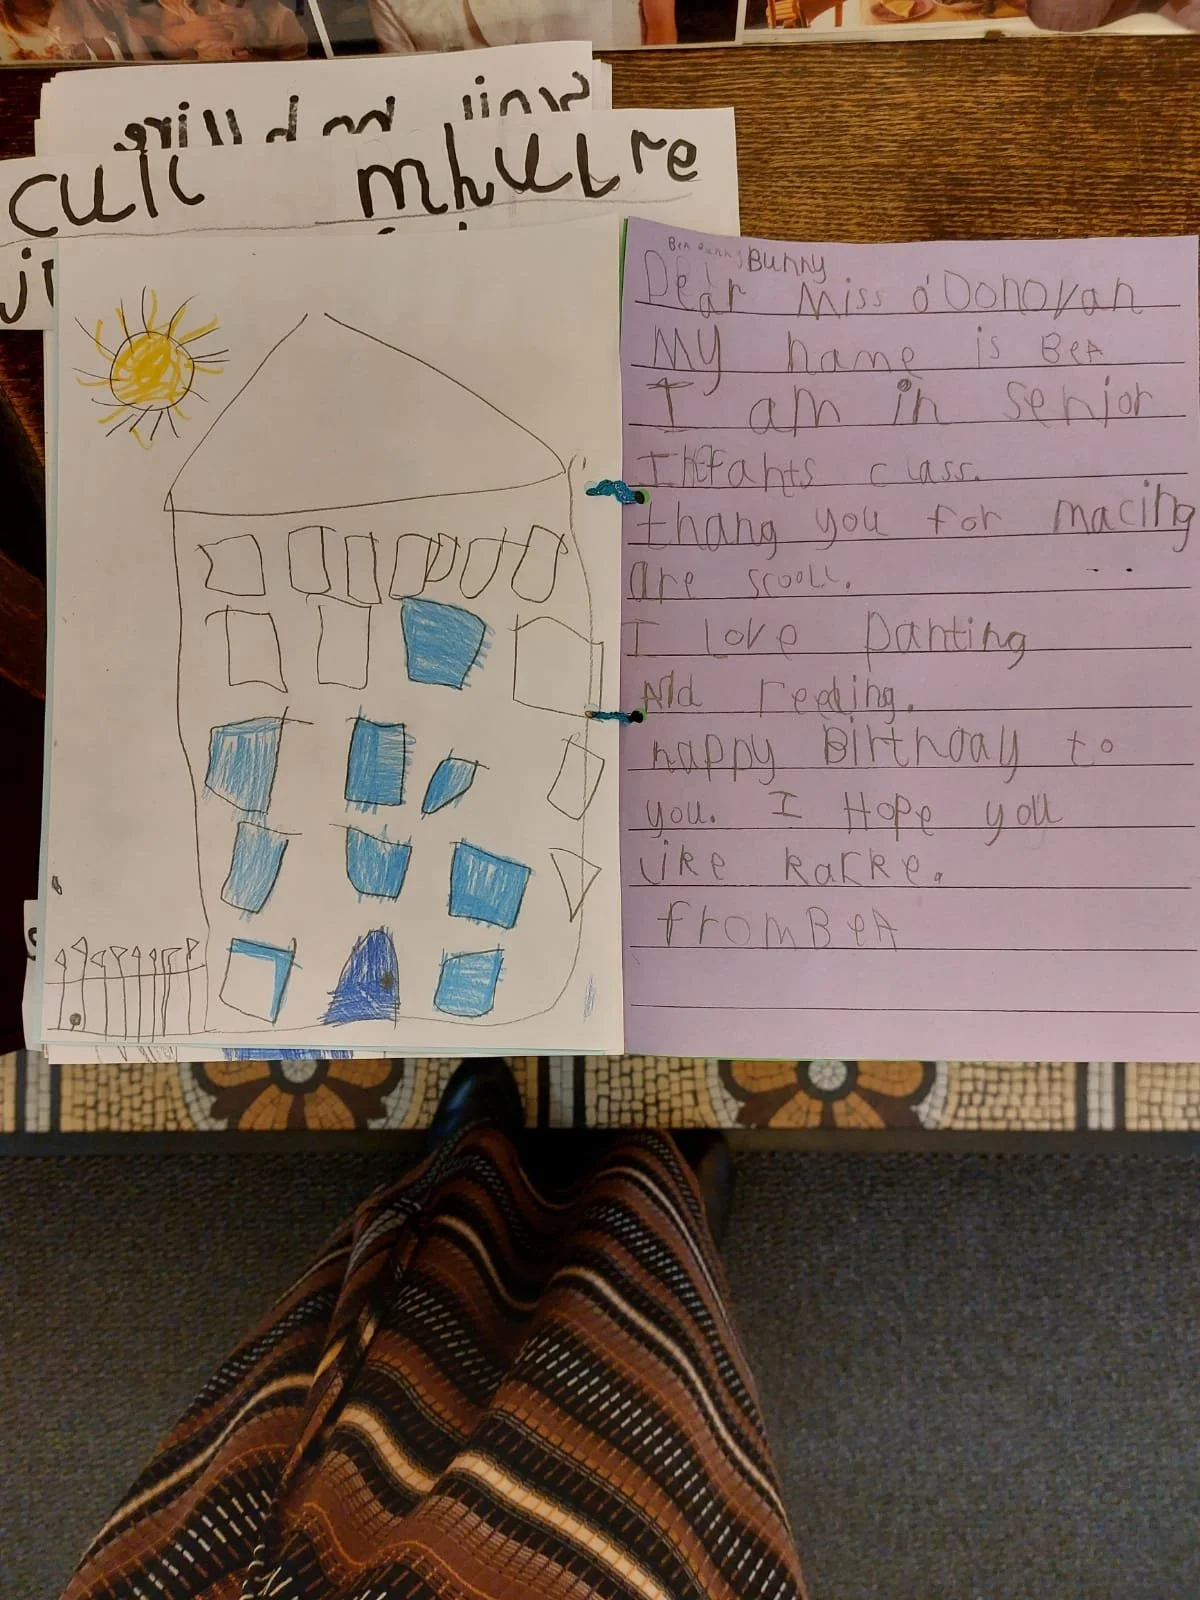 cuil
mhuire
Bunny
Dear Miss o'Donovan
My name is BeA
I am in senior
Inffants class.
thang you for macing
are scooll.
I love panting
And reeding.
happy Birthday to
you. I Hope you
like karke.
from BeA